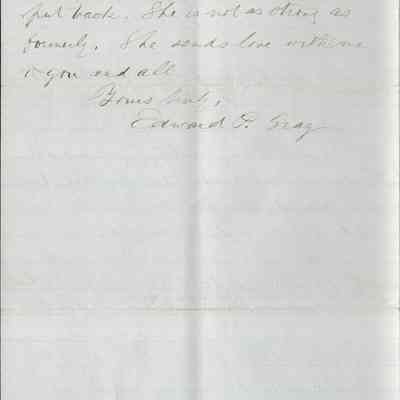 put back. She is not as strong as
formerly. She sends love with me
to you and all
Yours truly,
Edward P. Gray